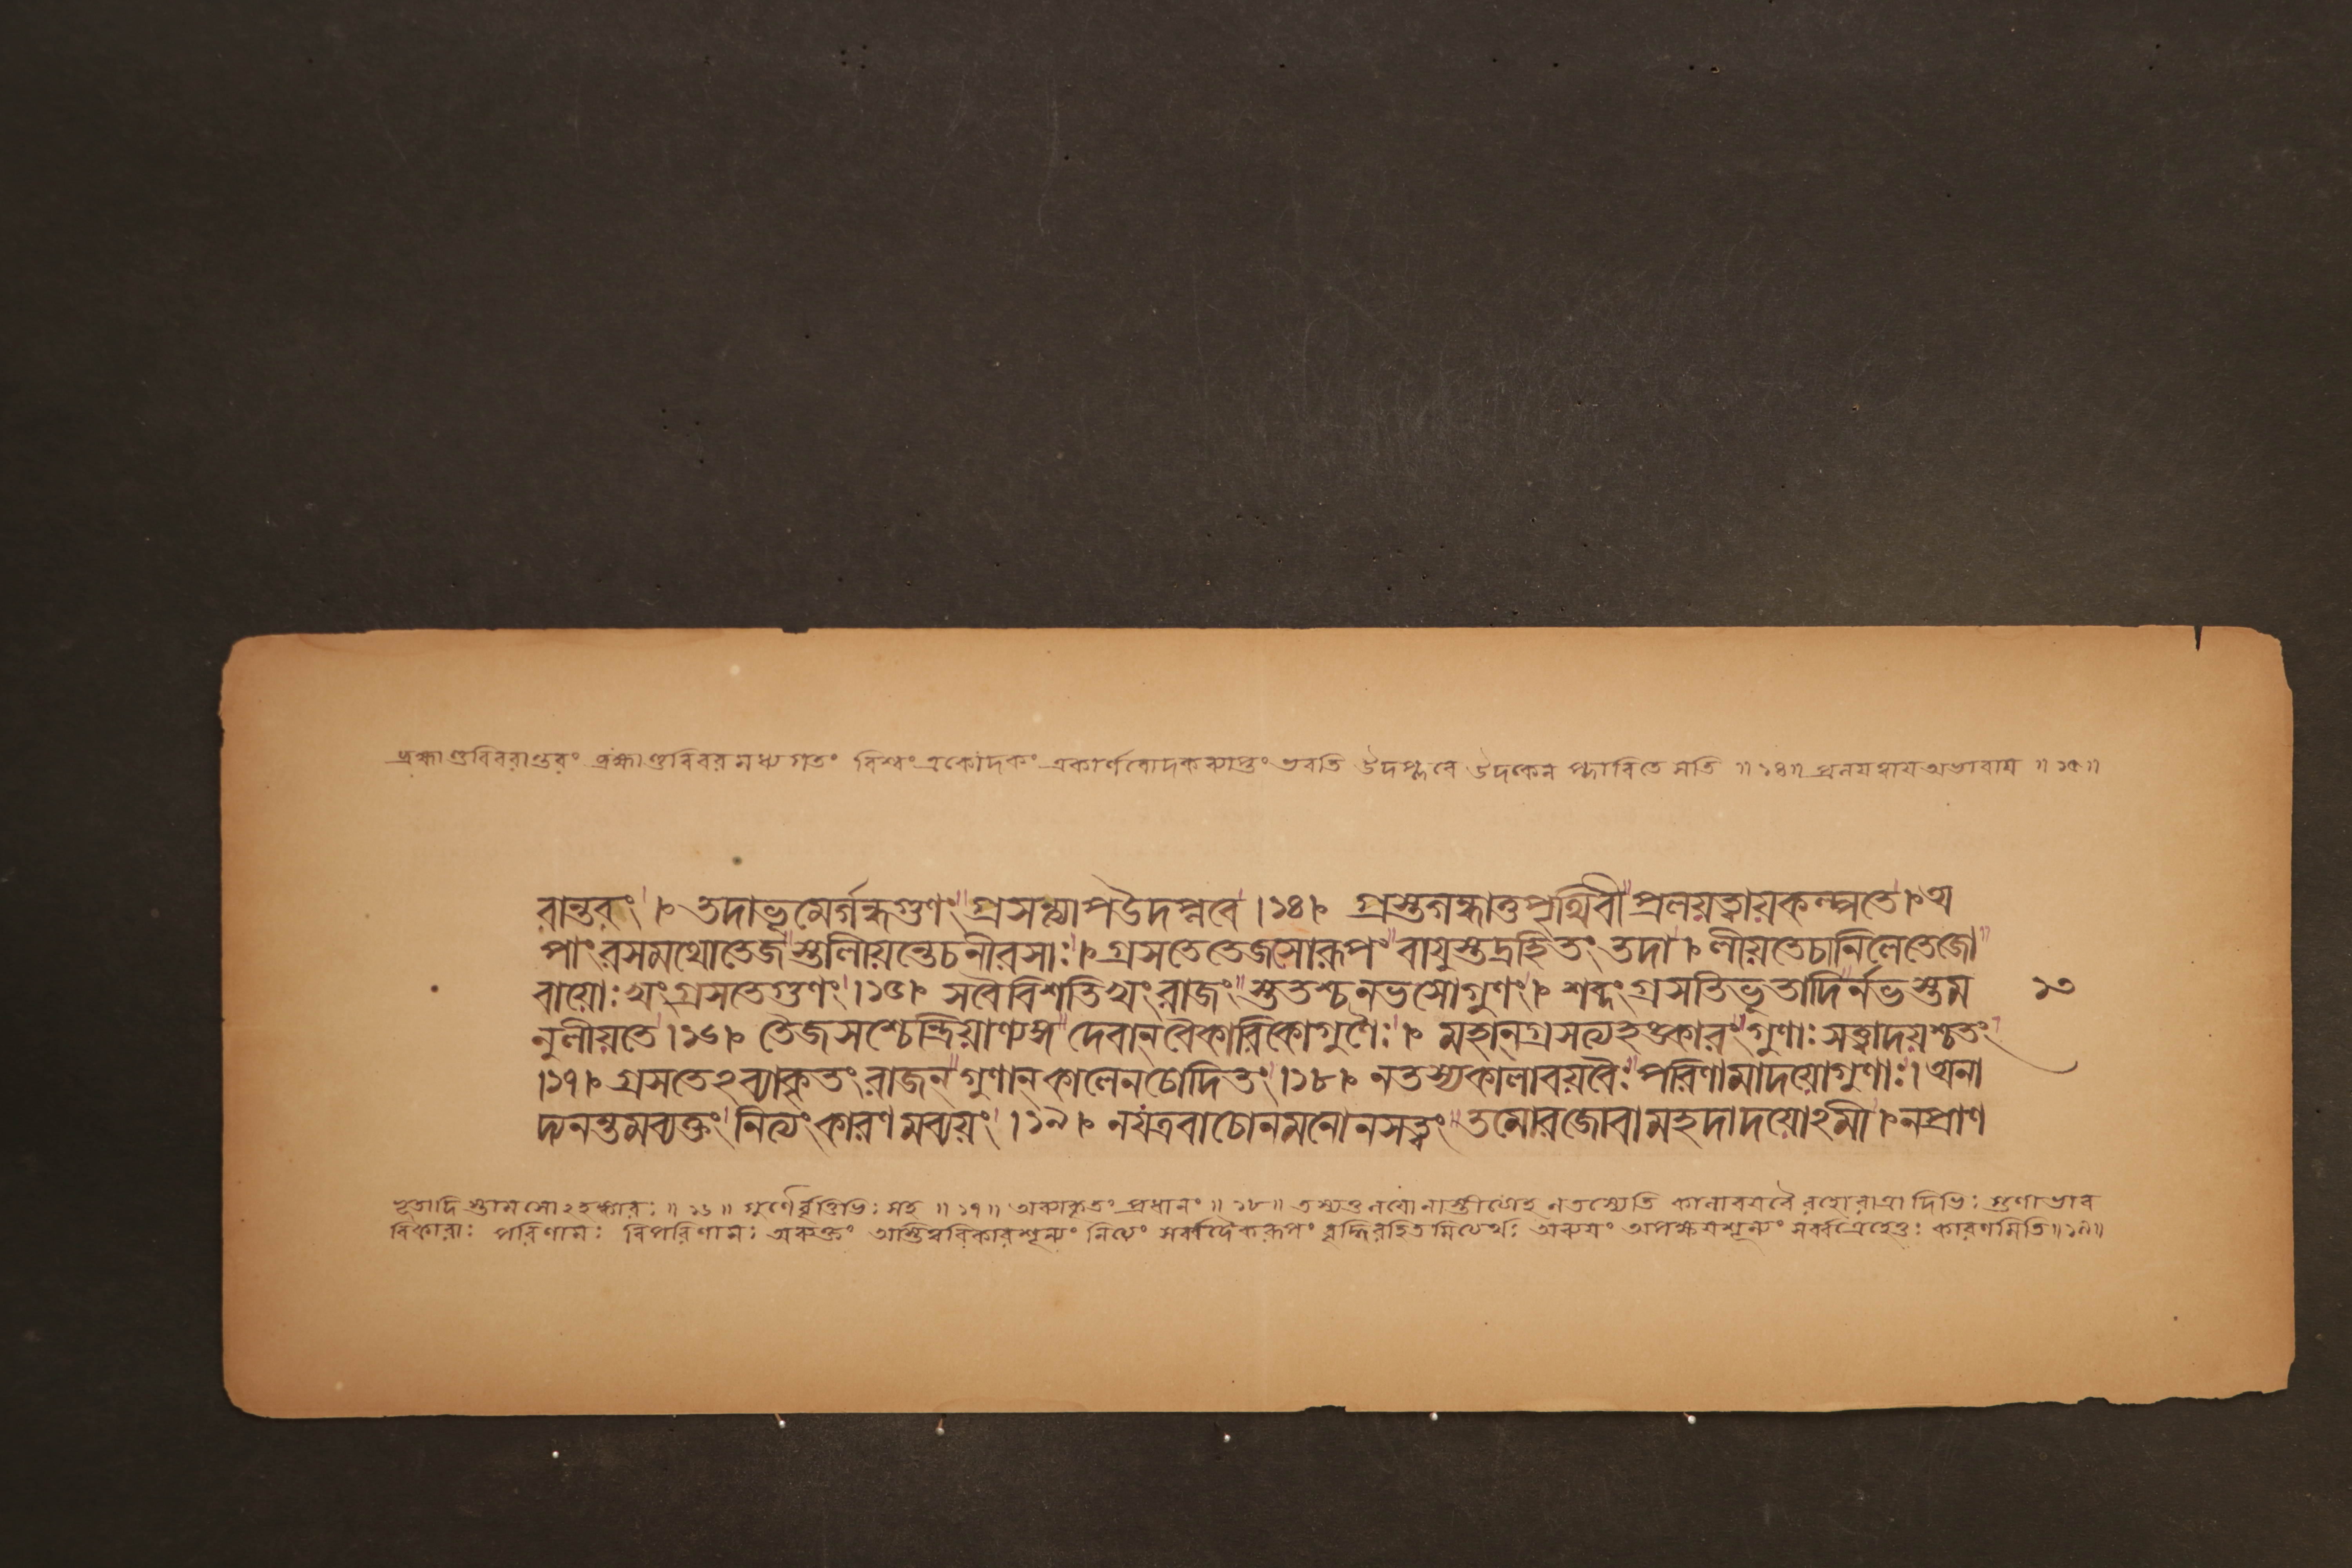 ব্রহ্মাণ্ডবিবরান্তরং ব্রহ্মাণ্ডবিবরমধ্যগতং বিশ্বং একোদকং একার্ণবোদকব্যাপ্তং ভবতি উদপ্লবে উদকেন প্লাবিতে সতি ॥১৪॥ প্রলয়ত্বায় অভাবায় ॥১৫॥
রান্তরং । তদাভূমের্গন্ধগুণং গ্রসন্ত্যাপউদপ্লবে ।১৪। গ্রস্তগন্ধাতুপৃথিবী প্রলয়ত্বায়কল্পতে । অ
পাংরসমথোতেজ স্তালীয়ন্তেচনীরসাঃ । গ্রসতেতেজসোরূপং বায়ুস্তদ্রহিতং তদা । লীয়তেচানিলেতেজো
বায়োঃখংগ্রসতেগুণং ।১৫। সবৈবিশতিখংরাজং স্ততশ্চনভসোগুণং । শব্দংগ্রসতিভূতাদি র্নভস্তম ১৩
নুলীয়তে ।১৬। তৈজসশ্চেন্দ্রিয়াণ্যঙ্গ দেবান্বৈকারিকোগুণৈঃ । মহান্গ্রসত্যহঙ্কারং গুণাঃসত্ত্বাদয়শ্চতং
।১৭। গ্রসতেঽব্যাকৃতংরাজন্ গুণান্কালেনচোদিতং ।১৮। নতস্যকালাবয়বৈঃ পরিণামাদয়োগুণাঃ । অনা
দ্যনন্তমব্যক্তং নিত্যংকারণমব্যয়ং ।১৯। নযত্রবাচোনমনোনসত্ত্বং তমোরজোবামহদাদয়োঽমী । নপ্রাণ
ভূতাদিস্তামসোঽহঙ্কারঃ ॥১৬॥ গুণৈর্বৃত্তিভিঃ সহ ॥১৭॥ অব্যাকৃতং প্রধানং ॥১৮॥ তস্যতু নতস্যেতি কালাবয়বৈরহোরাত্রাদিভিঃ গুণাভাব
বিকারাঃ পরিণামঃ বিপরিণামঃ অব্যক্তং অস্তিত্ববিকারশূন্যং নিত্যং সর্ব্বদৈকরূপং বৃদ্ধিরহিতমিত্যর্থঃ অব্যয়ং অপক্ষয়শূন্যং সর্ব্বত্রহেতুঃ কারণমিতি ॥১৯॥